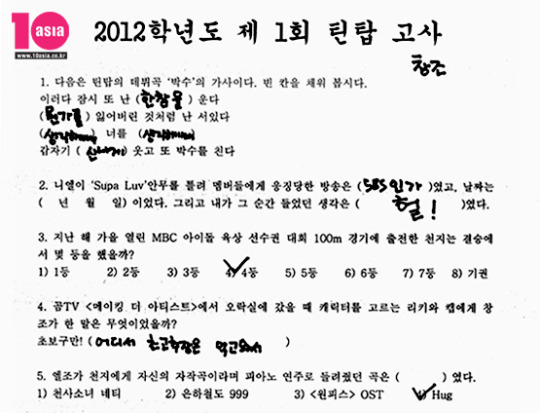 10
asia
www.10asia.co.kr
2012학년도 제 1회 틴탑 고사
창조
1. 다음은 틴탑의 데뷔곡 ‘박수’의 가사이다. 빈 칸을 채워 봅시다.
이러다 잠시 또 난 (한참을) 운다
(뭔가를) 잃어버린 것처럼 난 서있다
(생각해) 너를 (생각해)
갑자기 (신나게) 웃고 또 박수를 친다
2. 니엘이 ‘Supa Luv’안무를 틀려 멤버들에게 응징당한 방송은 (SBS인가)였고, 날짜는
( 년 월 일) 이었다. 그리고 내가 그 순간 들었던 생각은 ( 헐! )였다.
3. 지난 해 가을 열린 MBC 아이돌 육상 선수권 대회 100m 경기에 출전한 천지는 결승에
서 몇 등을 했을까?
1) 1등 2) 2등 3) 3등 4) 4등 5) 5등 6) 6등 7) 7등 8) 기권
4. 곰TV <메이킹 더 아티스트>에서 오락실에 갔을 때 캐릭터를 고르는 리키와 캡에게 창
조가 한 말은 무엇이었을까?
초보구만! (어디서 초고추장은 먹고와서 )
5. 엘조가 천지에게 자신의 자작곡이라며 피아노 연주로 들려줬던 곡은 ( ) 였다.
1) 천사소녀 네티 2) 은하철도 999 3) <원피스> OST 4) Hug